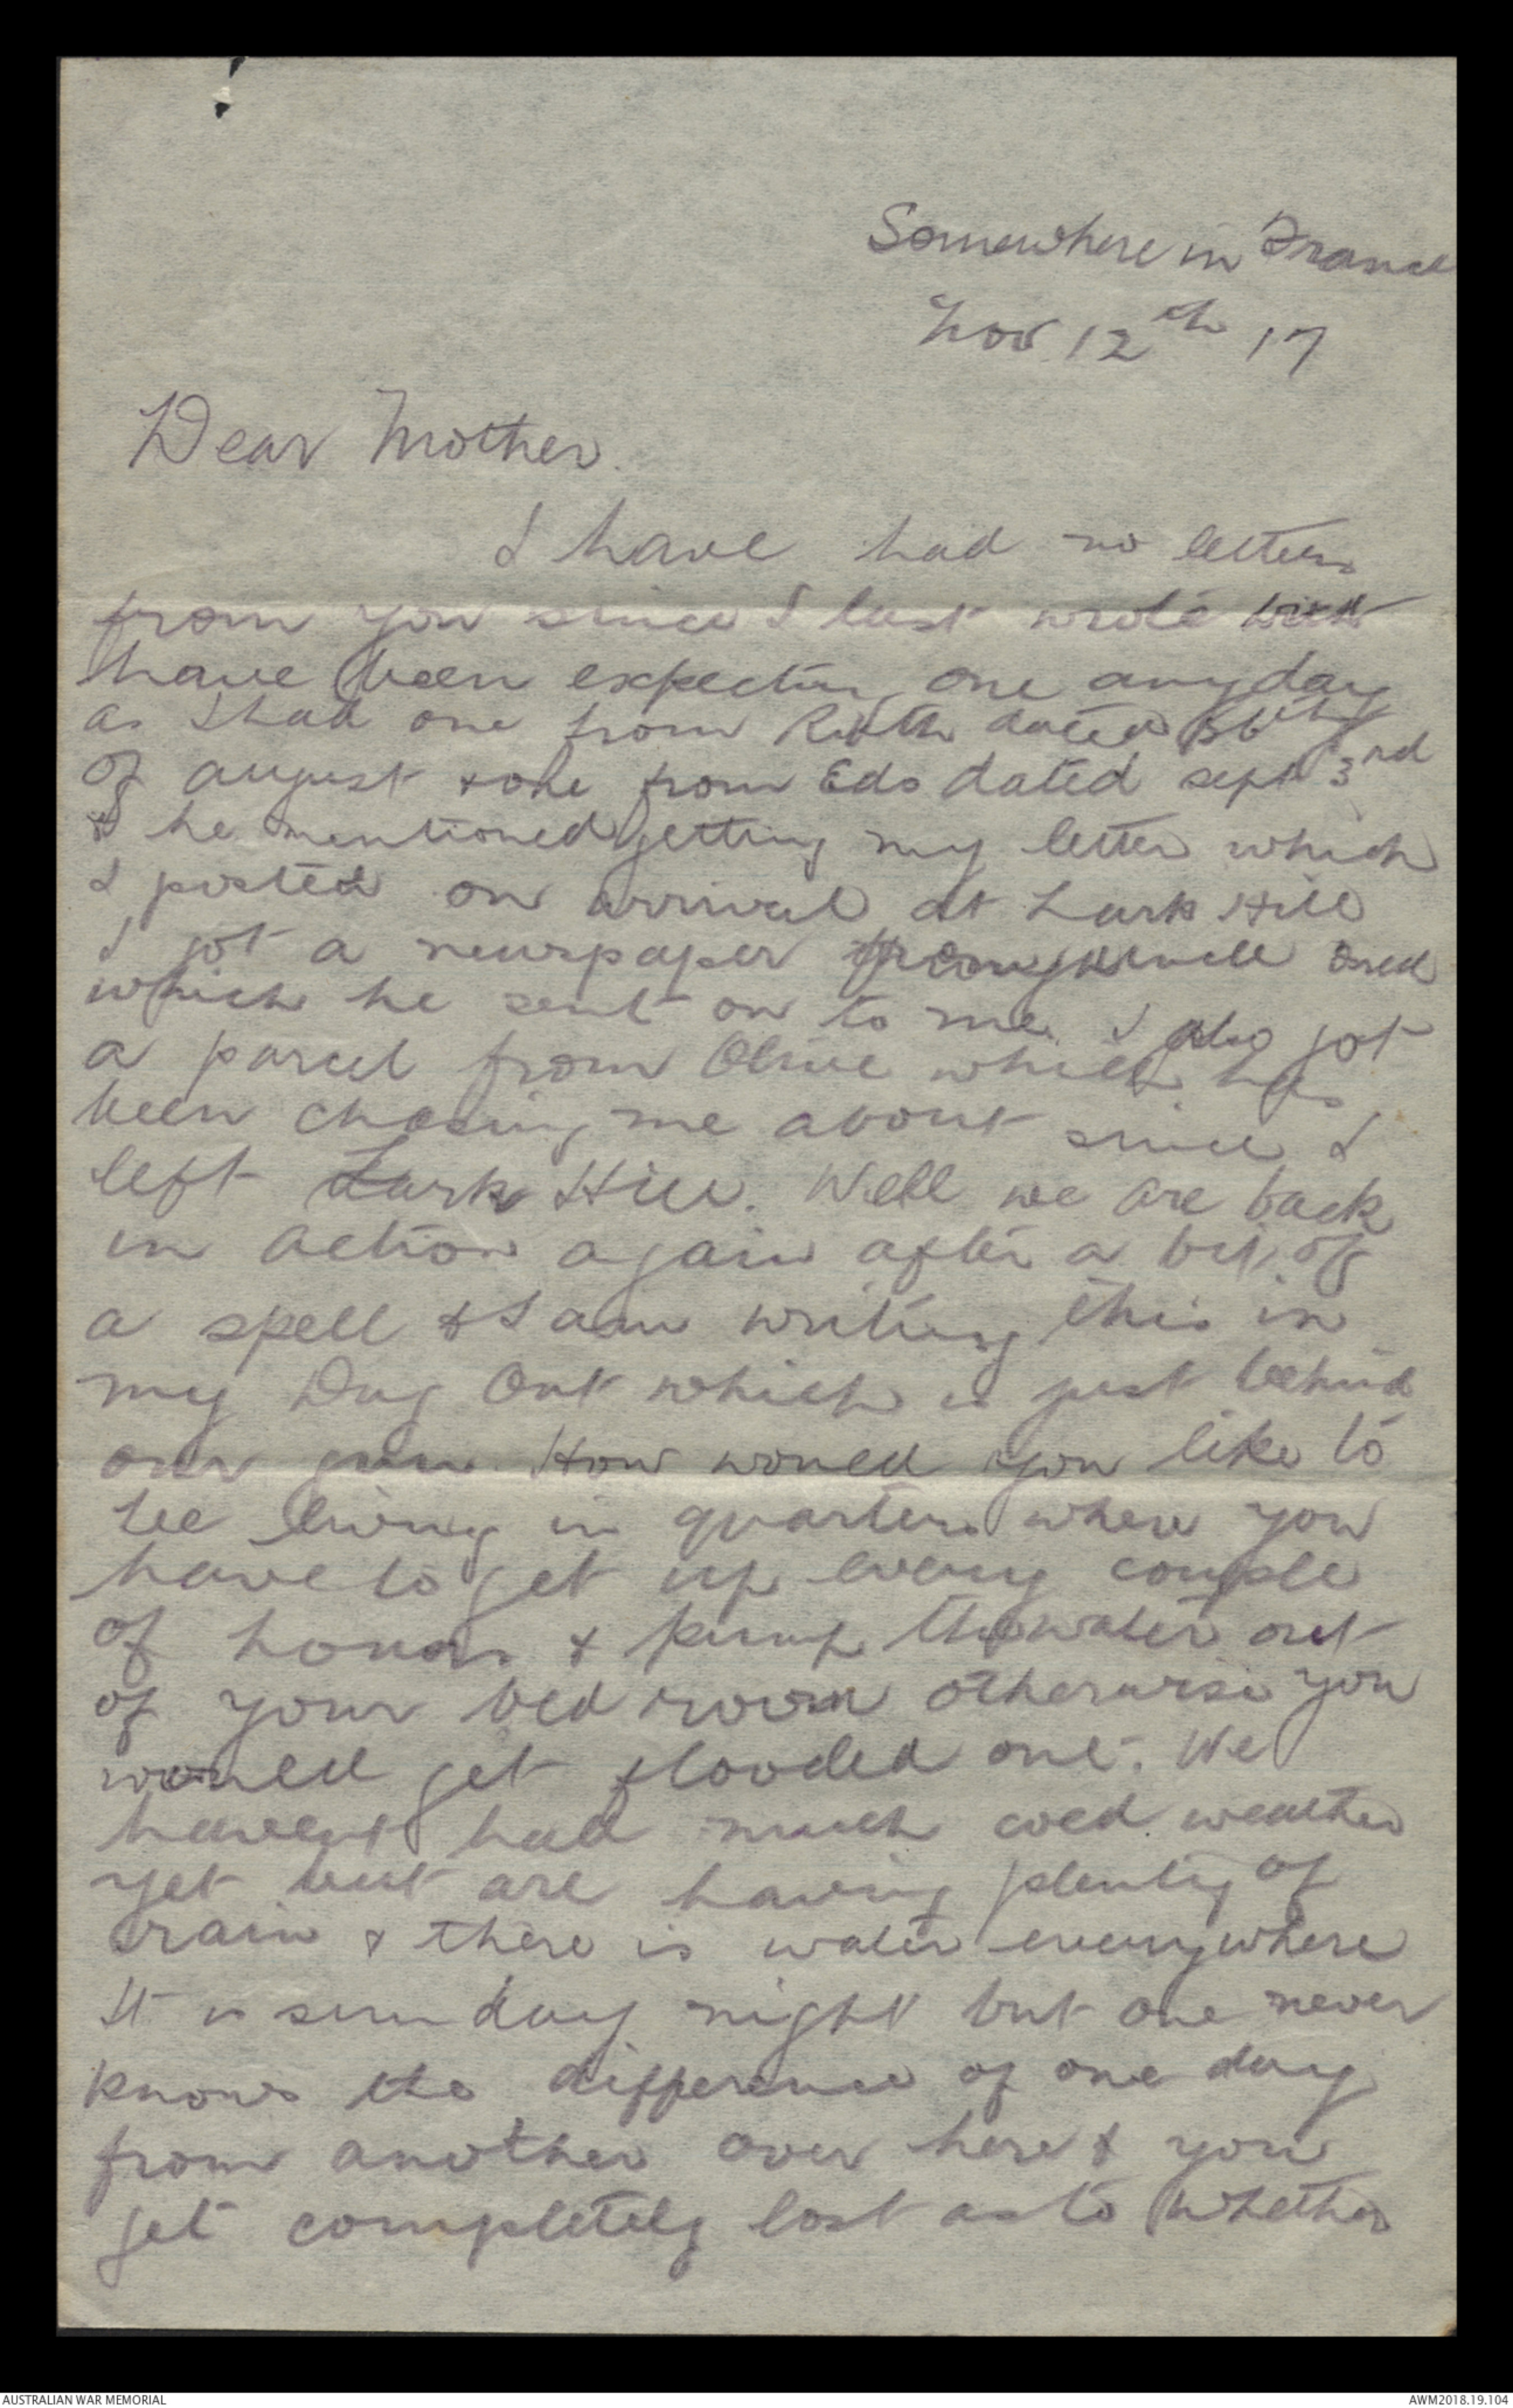 Somewhere in France
Nov 12th 17
Dear Mother.
I have had no letters
from you since I last wrote but
have been expecting one anyday
as I had one from Ruth dated
of august & one from Eds dated sept 3rd
& he mentioned getting my letter which
I posted on arrival at Lark Hill
I got a newspaper from uncle
which he sent on to me. I also got
a parcel from Olive which has
been chasing me about since I
left Lark Hill. Well we are back
in action again after a bit of
a spell & I am writing this in
my Dug Out which is just behind
our gun. How would you like to
be living in quarters where you
have to get up every couple
of hours & pump the water out
of your bed room otherwise you
would get flooded out. We
havent had much cold weather
yet but are having plenty of
rain & there is water everywhere
It is sunday night but one never
knows the difference of one day
from another over here & you
get completely lost as to whether
AUSTRALIAN WAR MEMORIAL
AWM2018.19.104